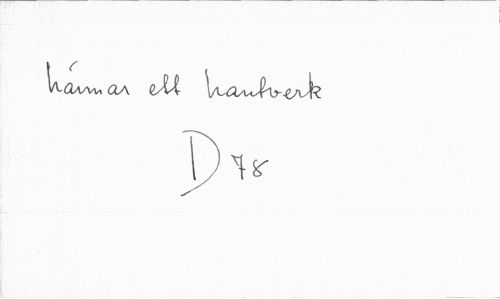 härmar ett hantverk
D 78